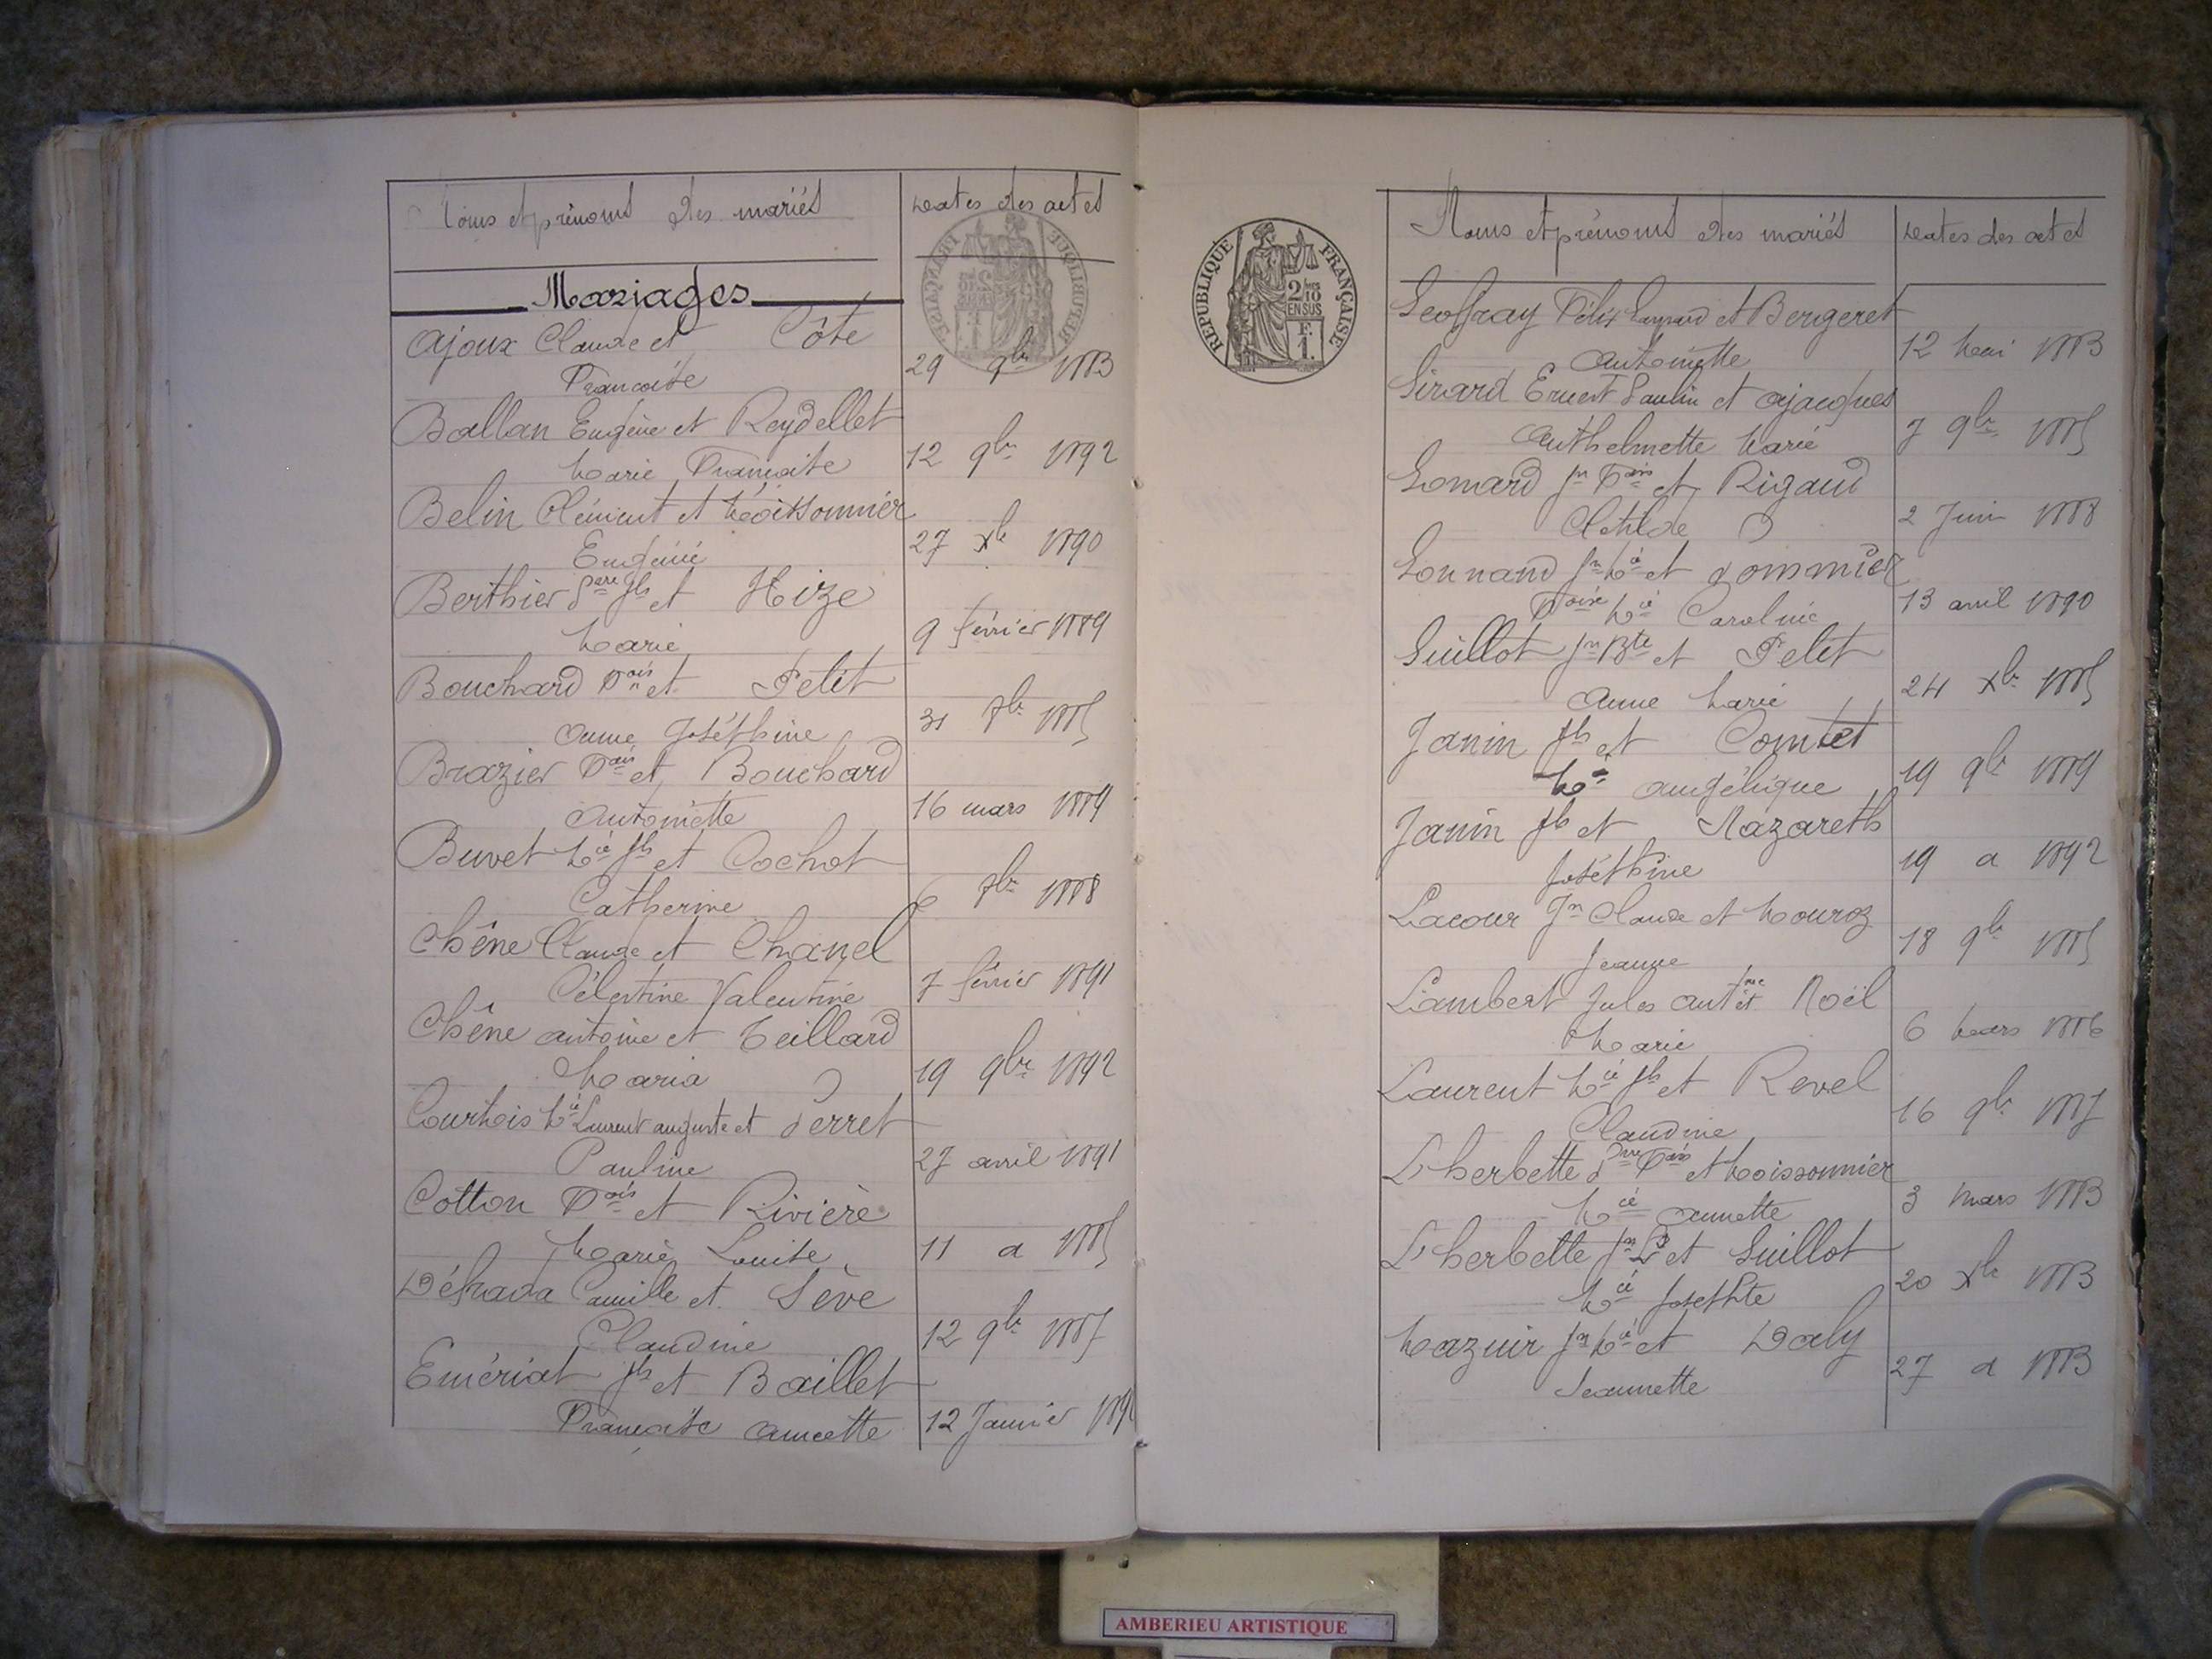 Noms et prénoms des mariés
Dates des actes
Mariages
Ajoux Claude et Côte
Françoise
29 9bre 1883
Ballan Eugène et Reydellet
Marie Françoise
12 9bre 1892
Belin Clément et Moissonnier
Eugénie
27 Xbre 1890
Berthier et Hize
Marie
9 février 1889
Bouchard Fois et Petit
Anne Joséphine
31 1885
Brazier Fois et Bouchard
Antoinette
16 mars
Buvet Mie Jh et Cochot
Catherine
6 1888
Chêne Claude et Chanel
Célestine Valentine
7 février 1891
Chêne Antoine et Teillard
Maria
19 9bre 1892
Courtois Mie Laurent Auguste et Perret
Pauline
27 avril 1891
Cotton Fois et Rivière
Marie Louise
11 a 1885
Camille et Sève
Claudine
12 9bre 1887
Emériat Jh et Baillet
Françoise Annette
12 Janvier
REPUBLIQUE FRANÇAISE
2/10
EN SUS
F.
1.
Noms et prénoms des mariés
Dates des actes
Geoffray Félix et Bergeret
Antoinette
12 Mai 1883
Girard Ernest Paulin et Ajacques
Anthelmette Marie
7 9bre 1885
Gonard Jn Fois et Rigaud
Clotilde
2 Juin 1888
Gonnand Jn Mie et Gommier
Foise Mie Caroline
13 avril 1890
Guillot Jn Bte et Petit
Anne Marie
24 Xbre 1885
Janin Jh et Comtet
Mie Angélique
19 9bre 1889
Janin Jh et Nazareth
Joséphine
19 a 1892
Lacour Jn Claude et Mouroz
Jeanne
18 9bre 1885
Lambert Jules Antne et Noël
Marie
6 Mars 1886
Laurent Mie Jh et Revel
Claudine
16 9bre 1887
Lherbette Pre Fois et Moissonnier
Mie Annette
3 mars 1883
Lherbette Jn Ls et Guillot
Mie Josephte
20 Xbre 1883
Mazuir Jn Mie et Daly
Jeannette
27 a 1883
AMBERIEU ARTISTIQUE